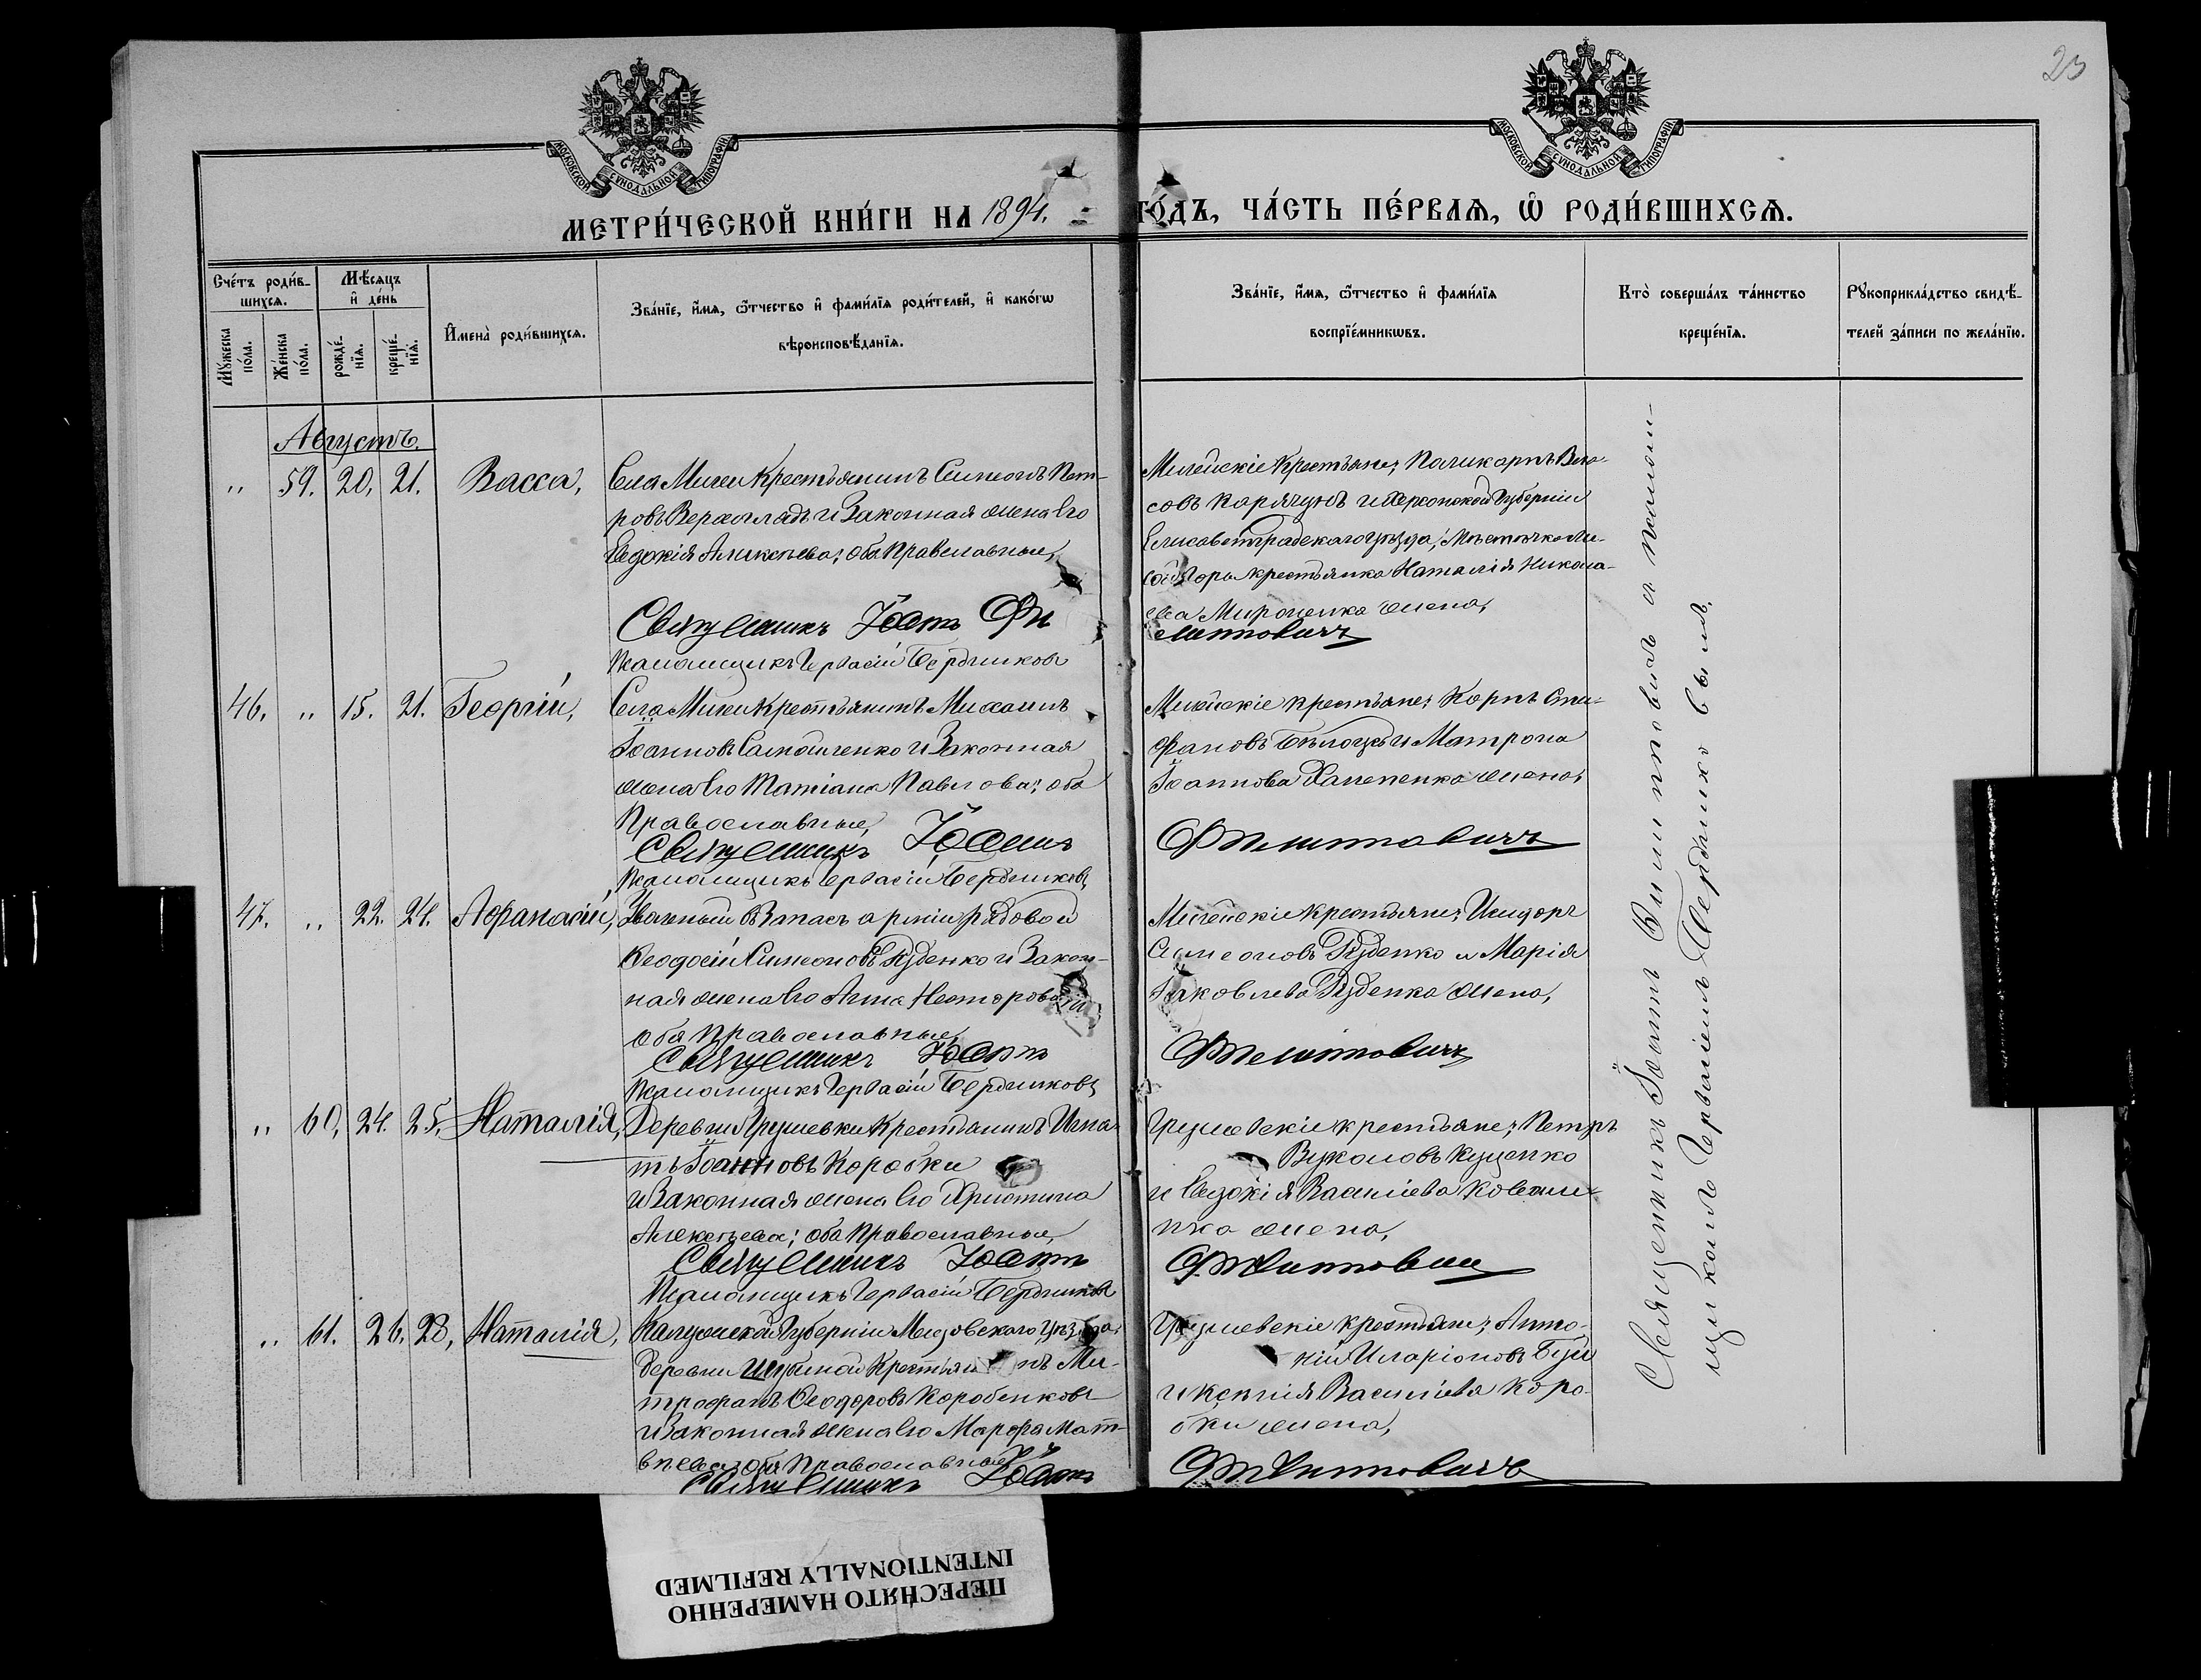 23
МОСКОВСКОЙ СѴНОДАЛЬНОЙ ТИПОГРАФІИ.
МОСКОВСКОЙ СѴНОДАЛЬНОЙ ТИПОГРАФІИ.
МЕТРИ́ЧЕСКОЙ КНИ́ГИ НА 1894. ГО́ДЪ, ЧА́СТЬ ПЕ́РВАѦ, Ѡ҆ РОДИ́ВШИХСѦ.
Сче́тъ роди́в-
шихсѧ.
Мꙋ́жеска
по́ла.
Же́нска
по́ла.
Мѣ́сѧцъ
и҆ де́нь
рожде́-
нїѧ.
креще́-
нїѧ.
И҆мена̀ роди́вшихсѧ.
Зва́нїе, и҆́мѧ, ѻ҆́тчество и҆ фами́лїѧ роди́телей, и҆ како́гѡ
вѣроисповѣ́данїѧ.
Зва́нїе, и҆́мѧ, ѻ҆́тчество и҆ фами́лїѧ
воспрїе́мникѡвъ.
Кто̀ соверша́лъ та́инство
креще́нїѧ.
Рꙋкоприкла́дство свидѣ́-
телей за́писи по жела́нїю.
Августъ.
" 59. 20. 21. Васса,
Села Мигеи Крестьянинъ Симеонъ Пет-
ровъ Верхогладъ и Законная жена его
Евдокія Алексѣева; оба Православные,
Священникъ Іоаннъ Фи
Псаломщикъ Гервасій Бердниковъ
Мигейскіе крестьяне; Поликарпъ Вла-
совъ Карачунъ и Херсонской Губерніи
Елисаветградскаго уѣзда, Мѣстечка Лы-
сой Горы крестьянка Наталія Никола-
ева Мироненко жена,
липповичъ
46. " 15. 21. Георгій,
Села Мигеи Крестьянинъ Михаилъ
Іоанновъ Самойленко и Законная
жена его Татіана Павлова; оба
Православные,
Священникъ Іоаннъ
Псаломщикъ Гервасій Бердниковъ
Мигейскіе крестьяне; Карпъ Сте-
фановъ и Матрона
Іоаннова жена,
Филипповичъ
47. " 22. 24. Афанасій,
въ Запасъ арміи рядовой
Ѳеодосій Симеоновъ Руденко и Закон-
ная жена его Анна Несторова
оба Православные,
Священникъ Іоаннъ
Псаломщикъ Гервасій Бердниковъ
Мигейскіе крестьяне; Исидоръ
Симеоновъ Руденко и Марія
Іаковлева Руденка жена,
Филипповичъ
" 60. 24. 25. Наталія,
Деревни Грушевки Крестьянинъ Игна-
тъ Іоанновъ Коробки
и Законная жена его Христина
Алексѣева; оба Православные,
Священникъ Іоаннъ
Псаломщикъ Гервасій Бердниковъ
Грушевскіе крестьяне; Петръ
Вуколовъ Куценко
и Евдокія Василіева Ковали-
нка жена,
Филипповичъ
" 61. 26. 28. Наталія,
Калужской Губерніи Медовскаго Уѣзда,
деревни Крестьянинъ Ми-
трофанъ Ѳеодоровъ Коробенковъ
и Законная жена его Марфа Мат-
вѣева; оба Православные,
Священникъ Іоаннъ
Грушевскіе крестьяне; Анто-
ній Иларіоновъ
и Ксенія Василіева Коро-
бки жена,
Филипповичъ
Священникъ Іоаннъ Филипповичъ и псалом-
щикомъ Гервасіемъ Бердниковымъ.
ПЕРЕСНЯТО НАМЕРЕННО
INTENTIONALLY REFILMED